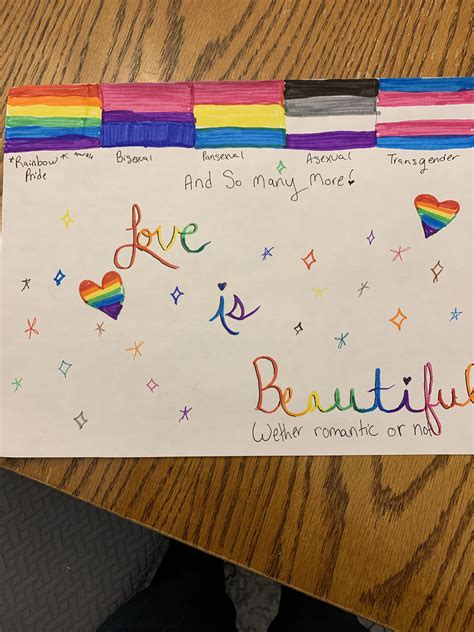 *Rainbow*
Pride
Bisexual
Pansexual
Asexual
Transgender
And So Many More!
Love
is
Beautiful
Wether romantic or not